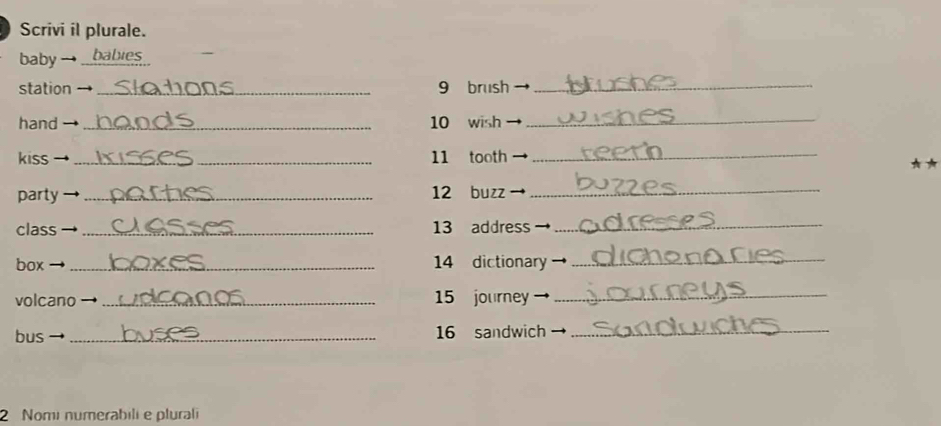 Scrivi il plurale.
baby → babies
station → stations
hand → hands
kiss → kisses
party → parties
class → classes
box → boxes
volcano → volcanos
bus → buses
9 brush → brushes
10 wish → wishes
11 tooth → teeth
12 buzz → buzzes
13 address → adresses
14 dictionary → dictionaries
15 journey → journeys
16 sandwich → sandwiches
★★
2 Nomi numerabili e plurali